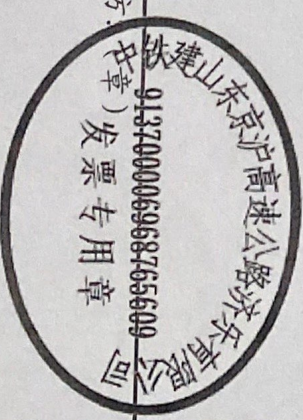 中铁建山东京沪高速公路济乐有限公司
9137000006968765609
发票专用章
章）